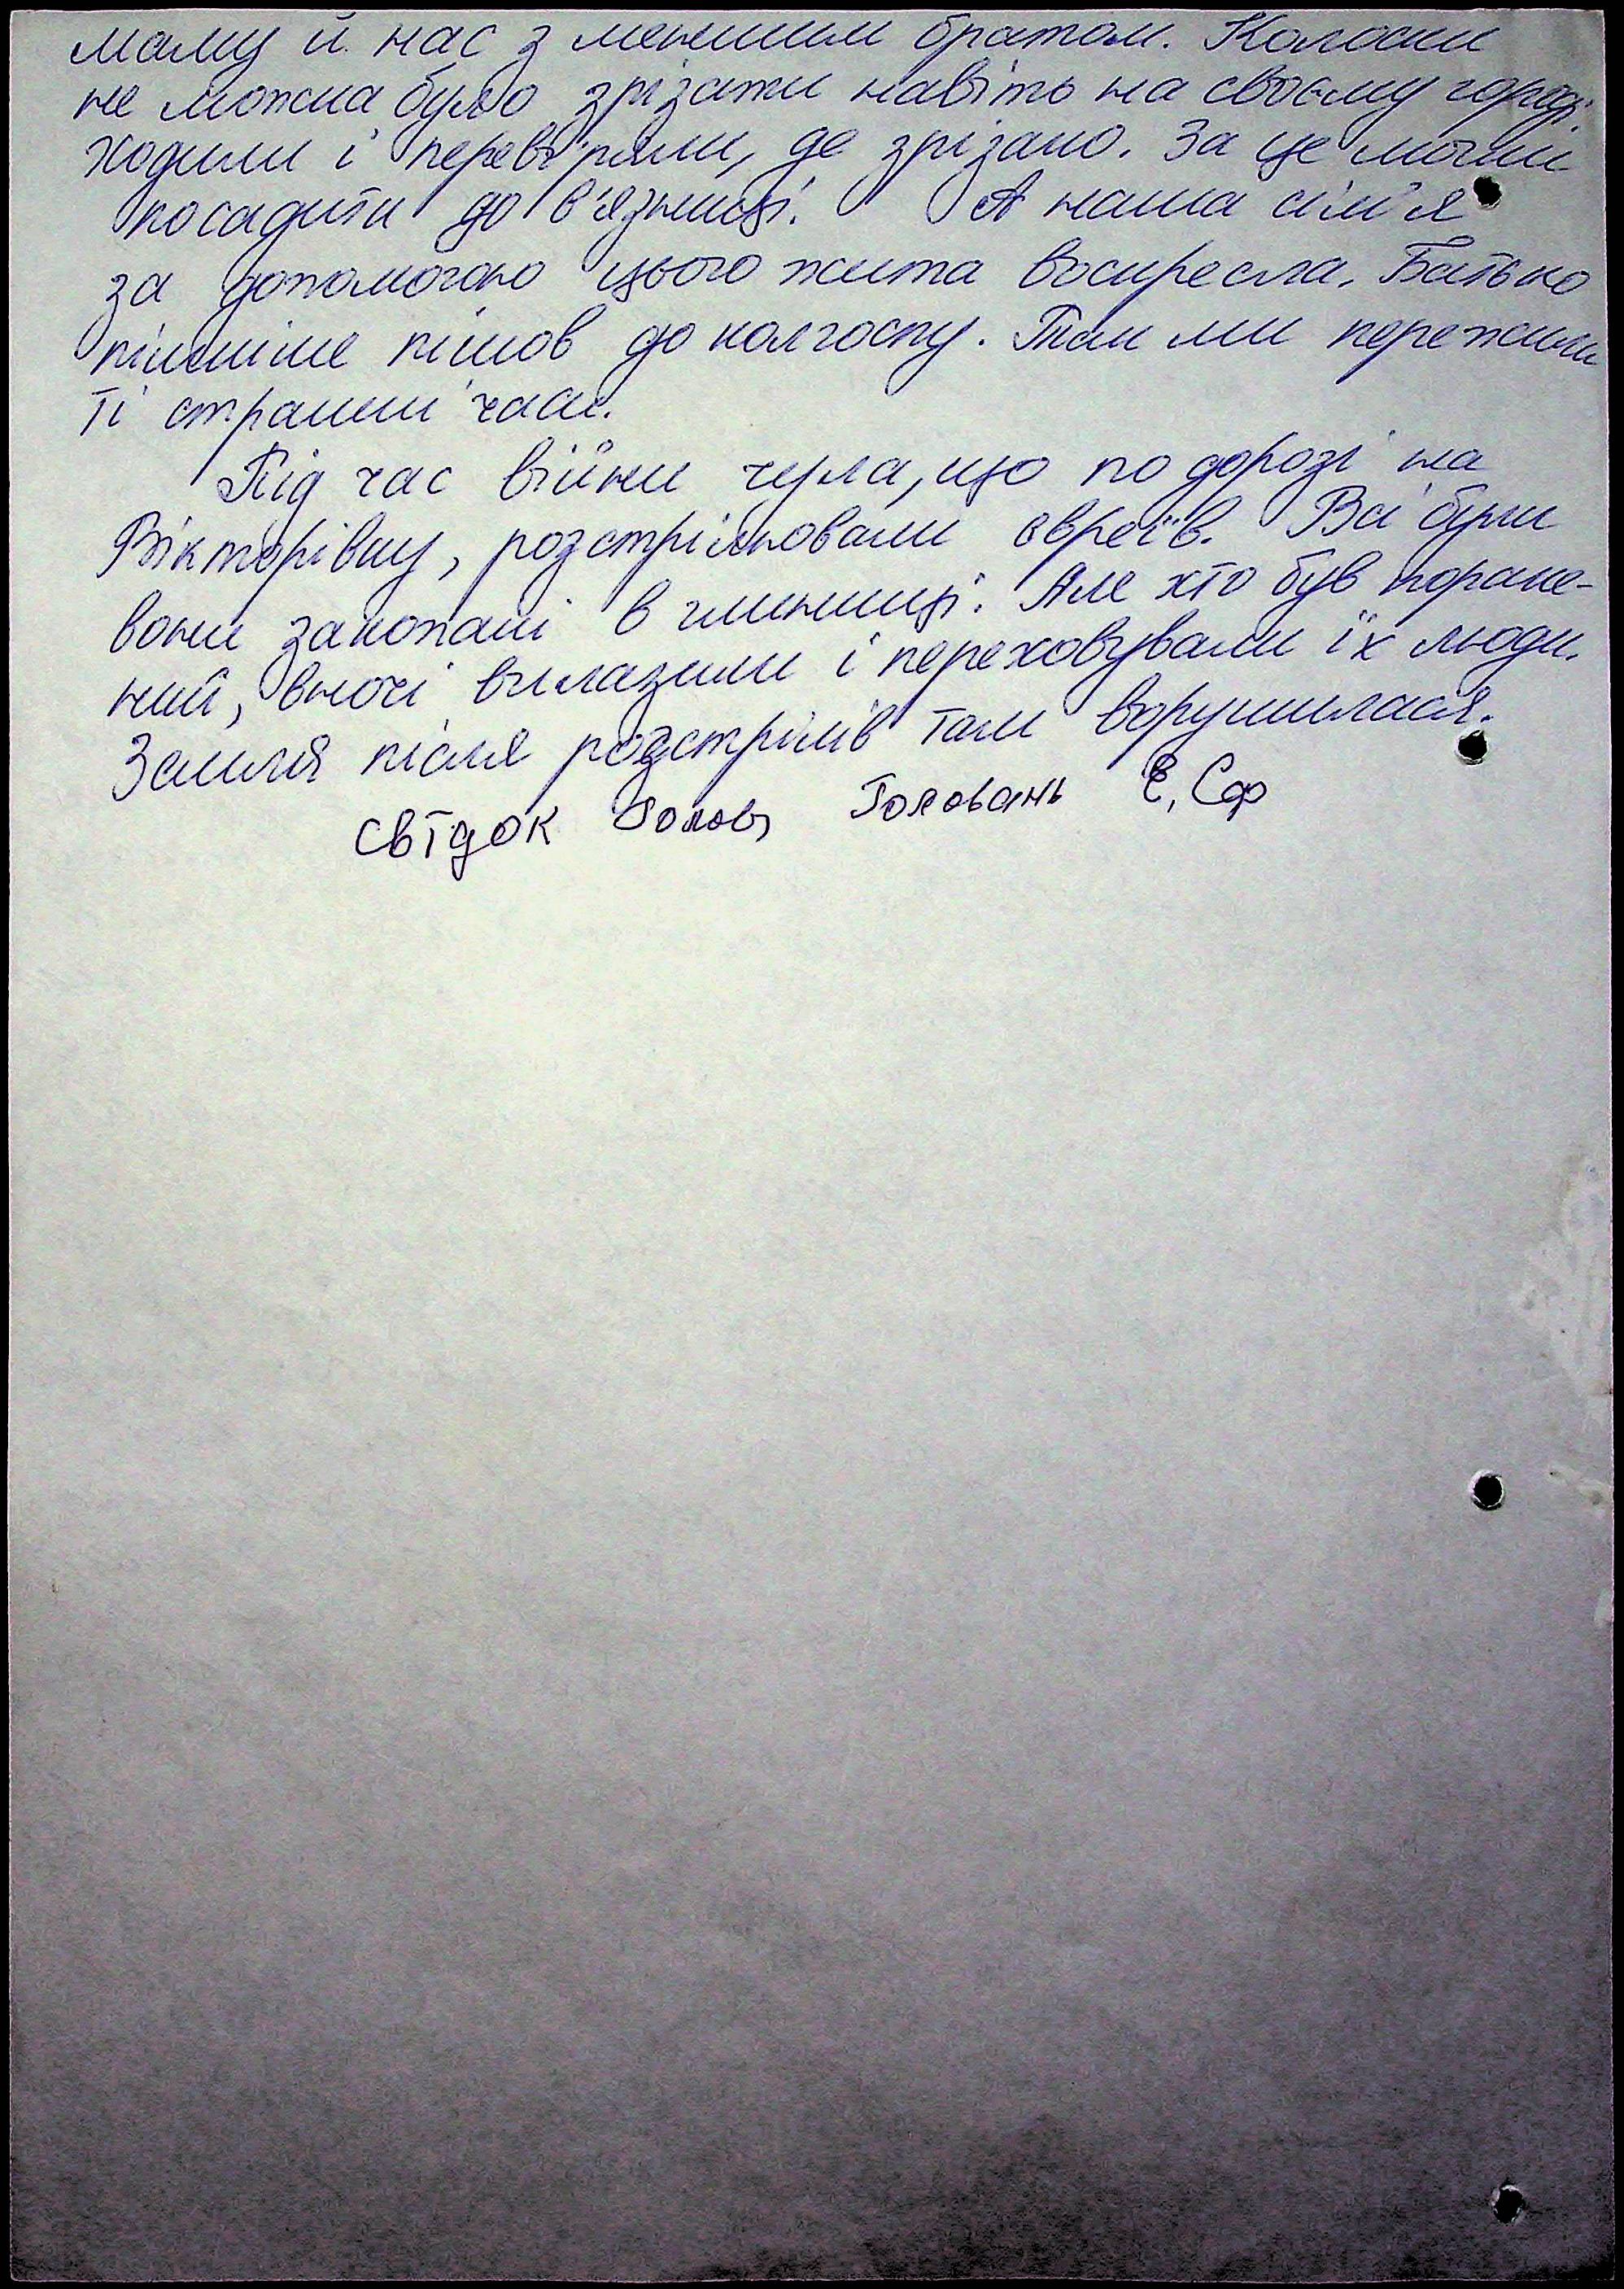 маму й нас з меншим братом. Колоски
не можна було зрізати навіть на своєму городі.
Ходили і перевіряли, де зрізано. За це могли
посадити до в'язниці. А наша сім'я
за допомогою цього жита воскресла. Батько
пізніше пішов до колгоспу. Так ми пережили
ті страшні часи.
Під час війни чула, що по дорозі на
Вікторівку, розстрілювали євреїв. Всі були
вони закопані в глинищі. Але хто був поране-
ний, вночі вилазили і переховували їх люди.
Земля після розстрілів там ворушилася.
Свідок Голов Головань Є. Сф